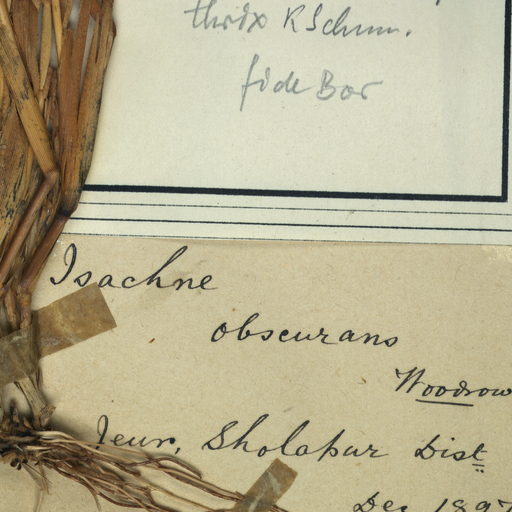 thrix K Schum.
fide Bor
Isachne
obscurans
Woodrow
Jeur, Sholapur Dist
Dec 1897